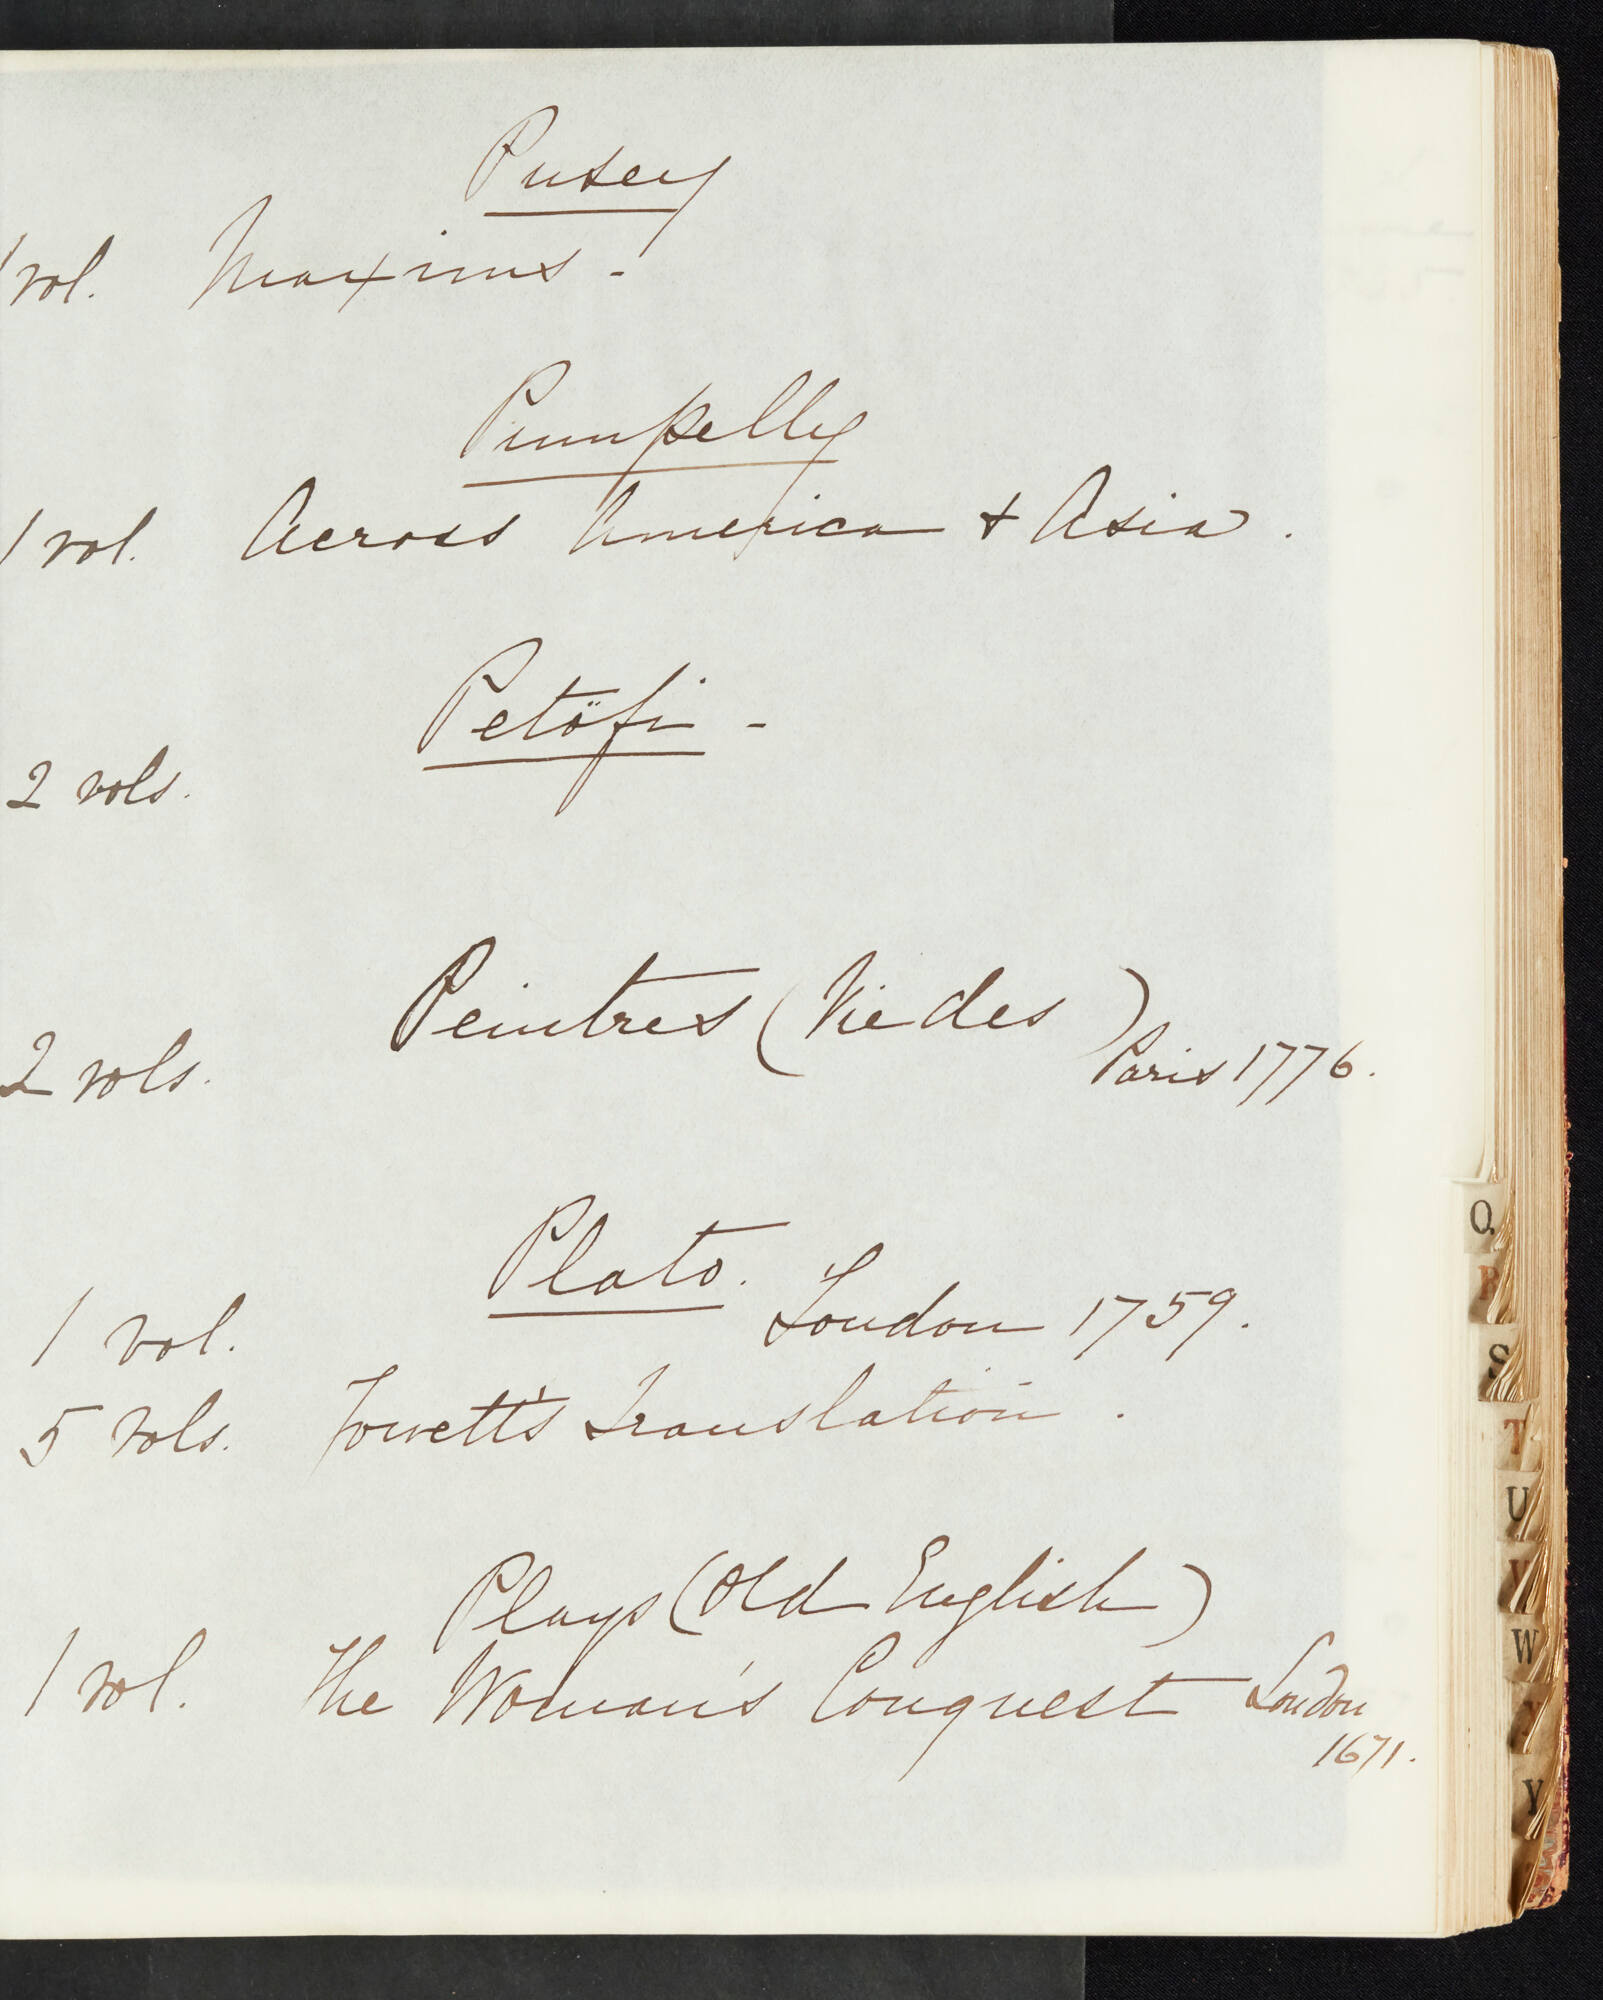 Pusey
1 vol. Maxims -
Pumpelly
1 vol. Across America + Asia.
Petöfi -
2 vols.
Peintres (Vie des )
2 vols. Paris 1776.
Plato.
1 vol. London 1759.
5 vols. Jowett's Translation.
Plays (Old English)
1 vol. The Woman's Conquest London
1671.
Q
R
S
T
U
V
W
X
Y